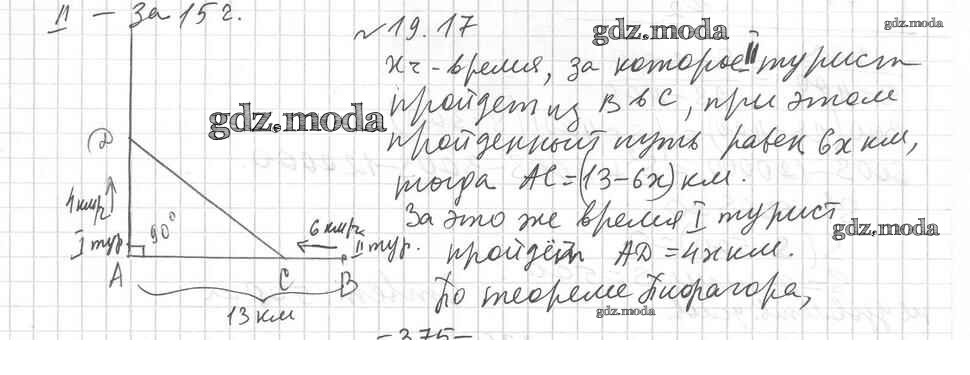 II – за 15 г.
№ 19.17
gdz.moda
x ч - время, за которое II турист
пройдет из B в C, при этом
gdz.moda
пройденный путь равен 6x км,
тогда AC = (13 - 6x) км.
За это же время I турист
gdz.moda
пройдёт AD = 4x км.
По теореме Пифагора,
gdz.moda
D
4 км/ч
I тур.
90°
6 км/ч
II тур.
A
C
B
13 км
- 375 -
gdz.moda